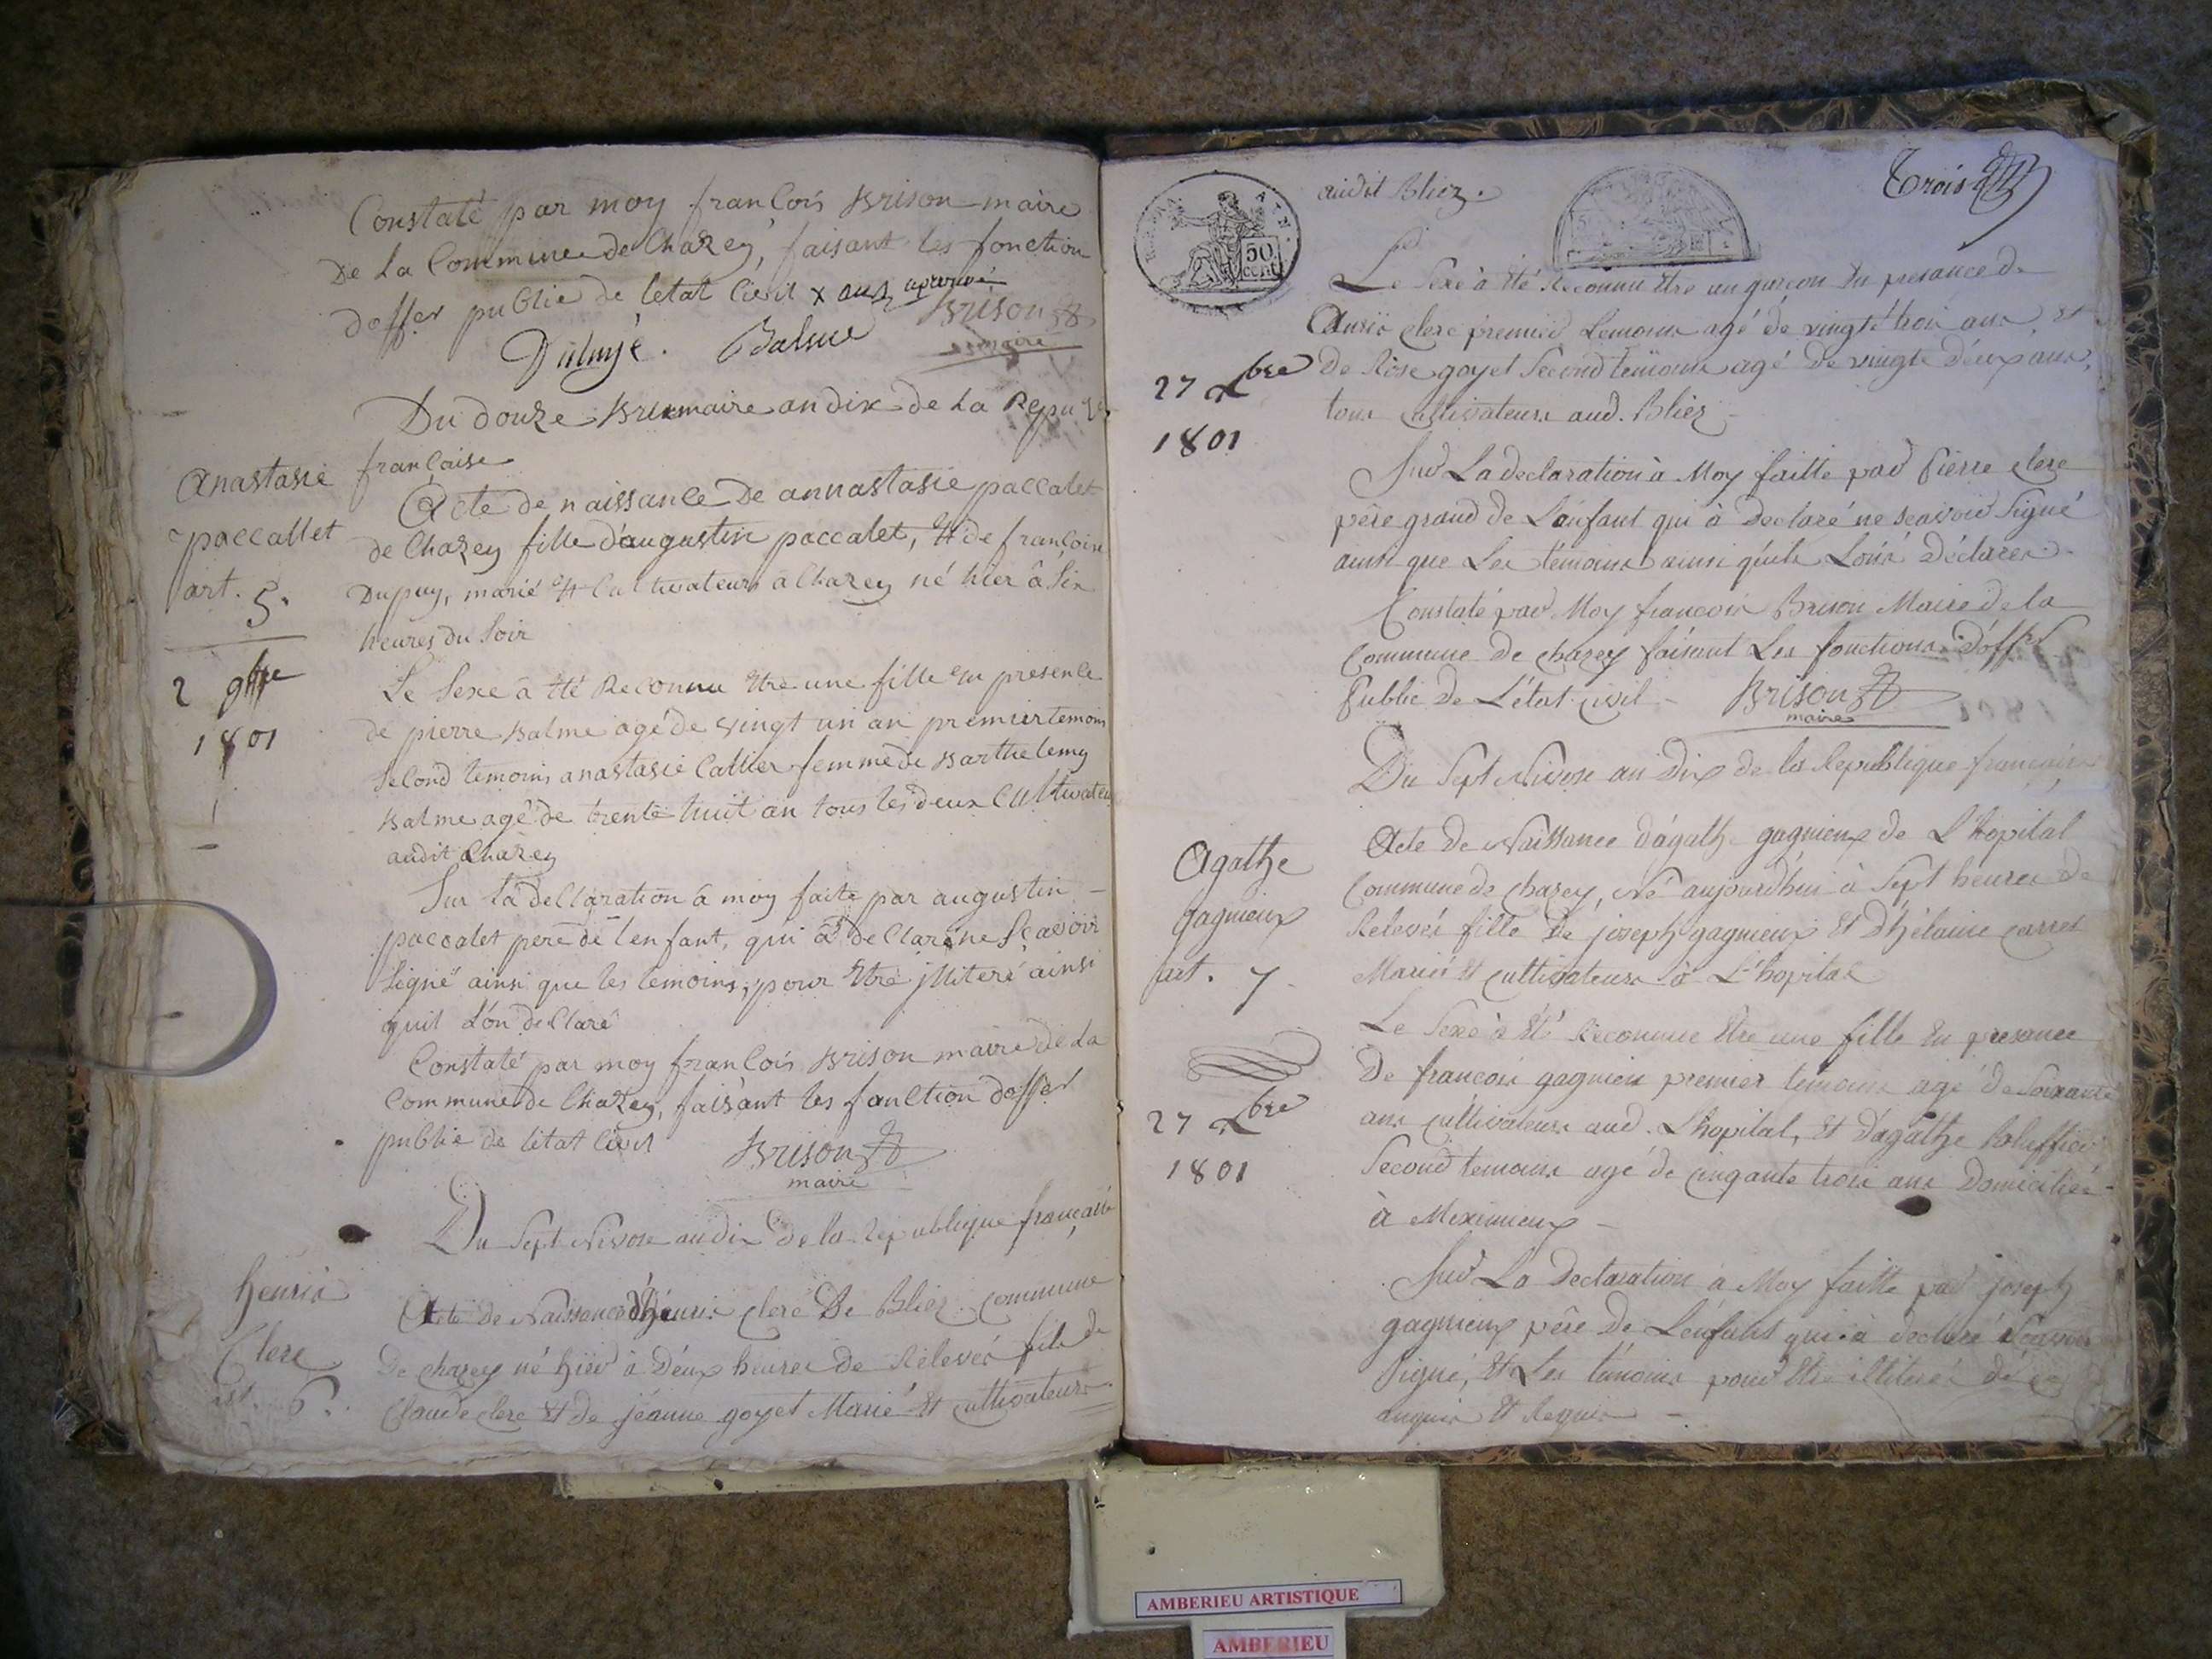 Constaté par moy francois Brison maire
De La Commune de Chazey, faisant les fonction
doffer public de letat Civil x aus approuvé
Brison
maire
Balme
Du douze Brumaire an dix de La Repu
francaise
Anastasie
paccallet
art. 5.
2 9bre
1801
Acte de naissance De annastasie paccalet
de Chazey fille daugustin paccalet, et de francoise
Dupuy, marié et Cultivateurs a Chazey né hier â Six
heures du Soir
Le Sexe a été Reconnu être une fille en presence
de pierre Balme agé de vingt un an premier temoins
Second temoins anastasie Callier femme de Barthelemy
Balme agé de trente huit an tous les deux Cultivateur
audit Chazey
Sur La declaration a moy faite par augustin
paccalet pere de lenfant, qui a declaré ne Scavoir
Signé ainsi que les temoins, pour être jlliteré ainsi
quil Lon declaré
Constaté par moy francois Brison maire de La
Commune de Chazey, faisant les fonction doffer
public de letat Civil
Brison
maire
Du Sept Nivose an dix de la republique francaise
henrie
Clerc
art. 6.
Acte de Naissance d'henrie clerc De Bliez commune
De chazey né hier à Deux heures de Relevés fils de
Claude clerc et de jeanne goyet Marié et cultivateurs
Trois
50
cent
audit Bliez.
Le Sexe à été Reconnu être un garcon En presance de
clerc premier temoins agé de vingt trois ans, et
de Rose goyet Second temoins agé de vingte deux ans,
tous cultivateurs aud. Bliez
27 Xbre
1801
Sur La declaration à Moy faitte par Pierre clerc
père grand de L'enfant qui à Declaré ne Scavoir Signé
ainsi que Les temoins ainsi qu'ils L'on Déclarer
Constaté par Moy francois Brison Maire de la
Commune De chazey faisant Les fonctions D'offer
Public De L'état civil
Brison
maire
Du Sept Nivose an Dix de la Republique francaise
Agathe
gagnieux
art. 7.
27 Xbre
1801
Acte De Naissance d'agathe gagnieux de L'hopital
Commune de chazey, Né aujourd'hui à Sept heures de
Relevés fille De joseph gagnieux et D'hélaine carret
Mariés et cultivateurs à L'hopital
Le Sexe à été Reconnue être une fille En presance
De francois gagnieu premier temoins agé de Soixante
ans cultivateurs aud. L'hopital, et d'agathe
Second temoins agé de cinqante trois ans Domiciliée
à Meximieux
Sur La Declaration a Moy faitte par joseph
gagnieux père De L'enfant qui à declaré Scavoir
Signé, et Les temoins pour être illiterés de ce
enquis et Requis
AMBERIEU ARTISTIQUE
AMBERIEU